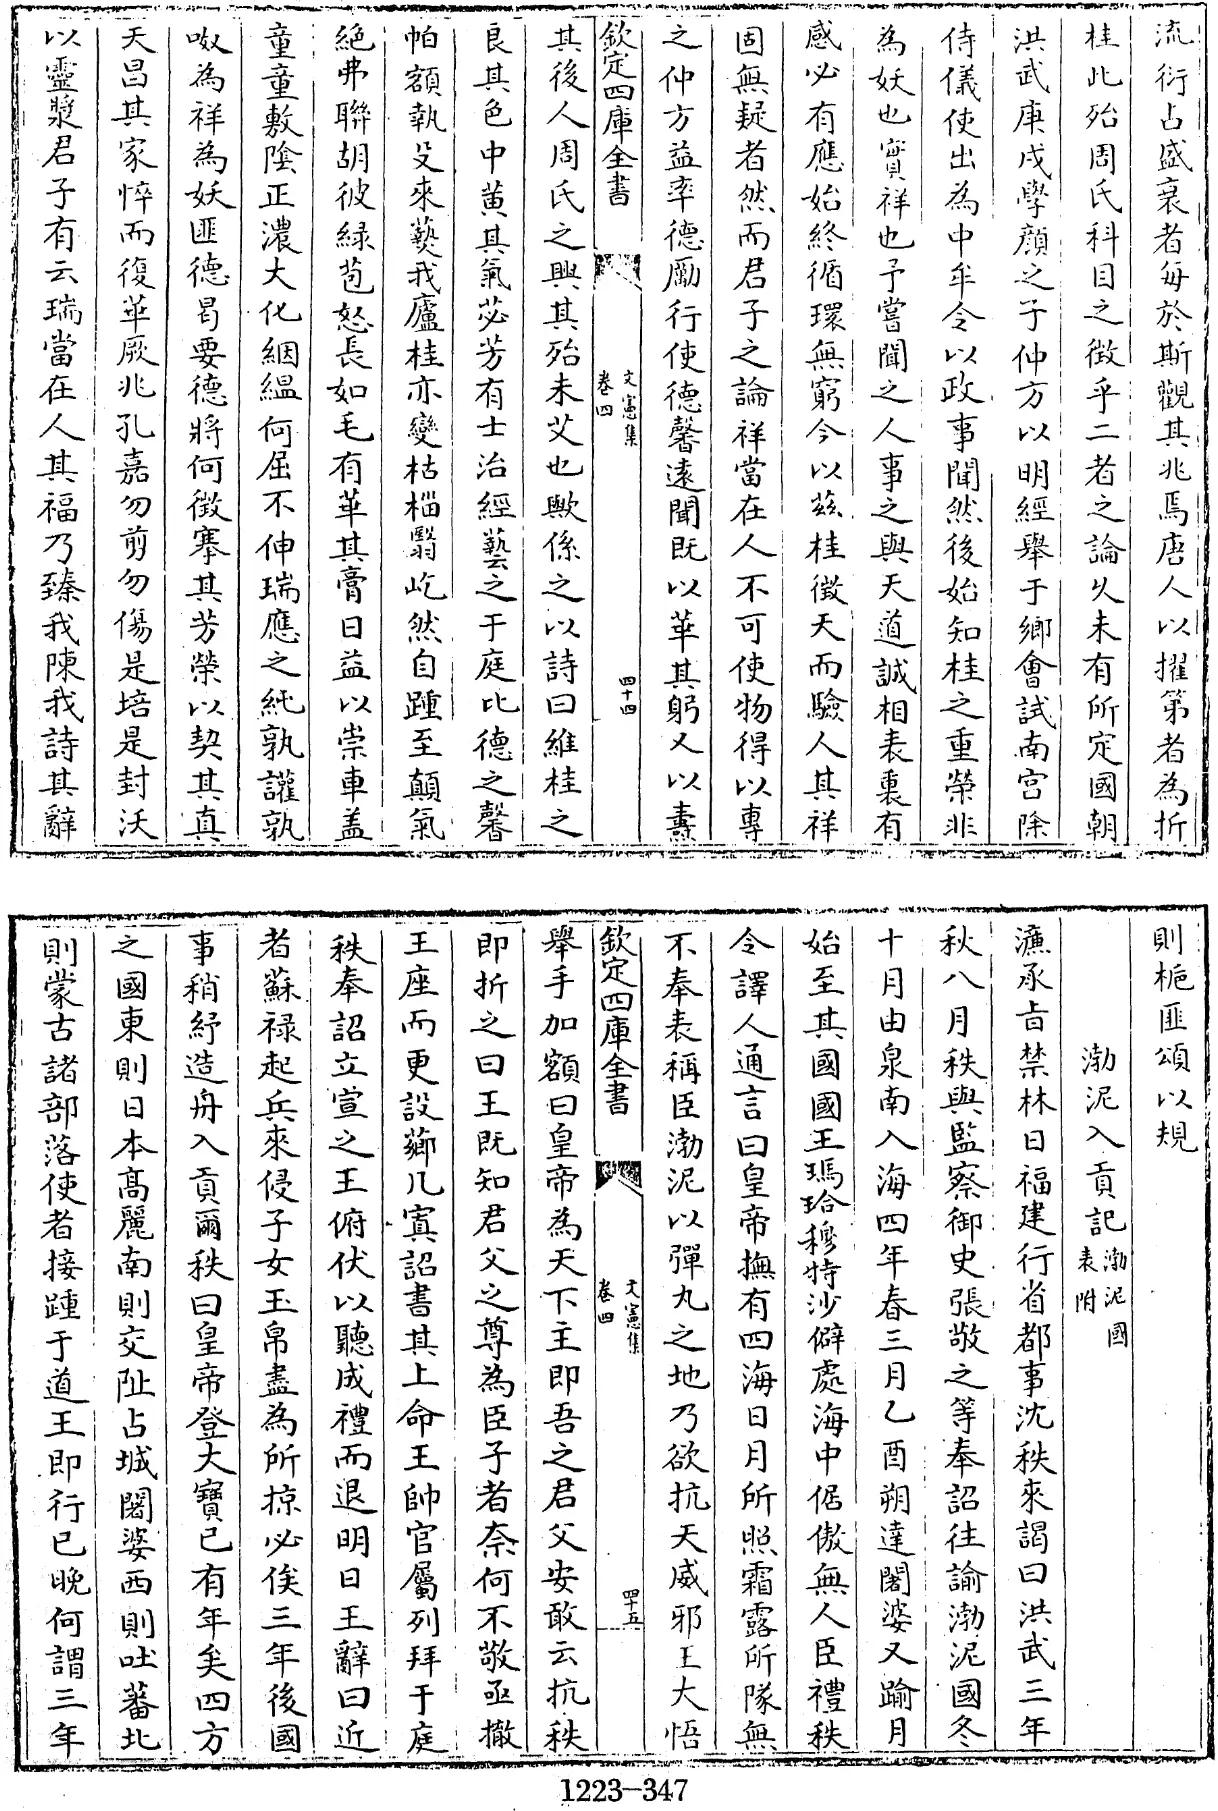 流衍占盛衰者每於斯觀其兆焉唐人以擢第者為折
桂此殆周氏科目之徴乎二者之論乆未有所定國朝
洪武庚戌學顔之子仲方以明經舉于鄉會試南宫除
侍儀使出為中牟令以政事聞然後始知桂之重榮非
為妖也實祥也予嘗聞之人事之與天道誠相表裏有
感必有應始終循環無窮今以兹桂徴天而驗人其祥
固無疑者然而君子之論祥當在人不可使物得以專
之仲方益率德勵行使德馨遠聞既以華其躬又以燾
欽定四庫全書
文憲集
卷四
四十四
其後人周氏之興其殆未艾也歟係之以詩曰維桂之
良其色中黄其氣苾芳有士治經藝之于庭比德之馨
帕額執殳來爇我廬桂亦變枯橊翳屹然自踵至顛氣
絶弗聯胡彼緑苞怒長如毛有華其膏日益以崇車盖
童童敷陰正濃大化絪緼何屈不伸瑞應之純孰讙孰
呶為祥為妖匪德曷要德將何徴搴其芳榮以契其真
天昌其家悴而復華厥兆孔嘉勿剪勿傷是培是封沃
以靈漿君子有云瑞當在人其福乃臻我陳我詩其辭
則梔匪頌以規
渤泥入貢記渤泥國表附
濂承旨禁林日福建行省都事沈秩來謁曰洪武三年
秋八月秩與監察御史張敬之等奉詔往諭渤泥國冬
十月由泉南入海四年春三月乙酉朔達闍婆又踰月
始至其國國王瑪哈穆特沙僻處海中倨傲無人臣禮秩
令譯人通言曰皇帝撫有四海日月所照霜露所隊無
不奉表稱臣渤泥以彈丸之地乃欲抗天威邪王大悟
欽定四庫全書
文憲集
卷四
四十五
舉手加額曰皇帝為天下主即吾之君父安敢云抗秩
即折之曰王既知君父之尊為臣子者奈何不敬亟撤
王座而更設薌几寘詔書其上命王帥官屬列拜于庭
秩奉詔立宣之王俯伏以聽成禮而退明日王辭曰近
者蘇禄起兵來侵子女玉帛盡為所掠必俟三年後國
事稍紓造舟入貢爾秩曰皇帝登大寶已有年矣四方
之國東則日本髙麗南則交阯占城闍婆西則吐蕃北
則蒙古諸部落使者接踵于道王即行已晚何謂三年
1223-347